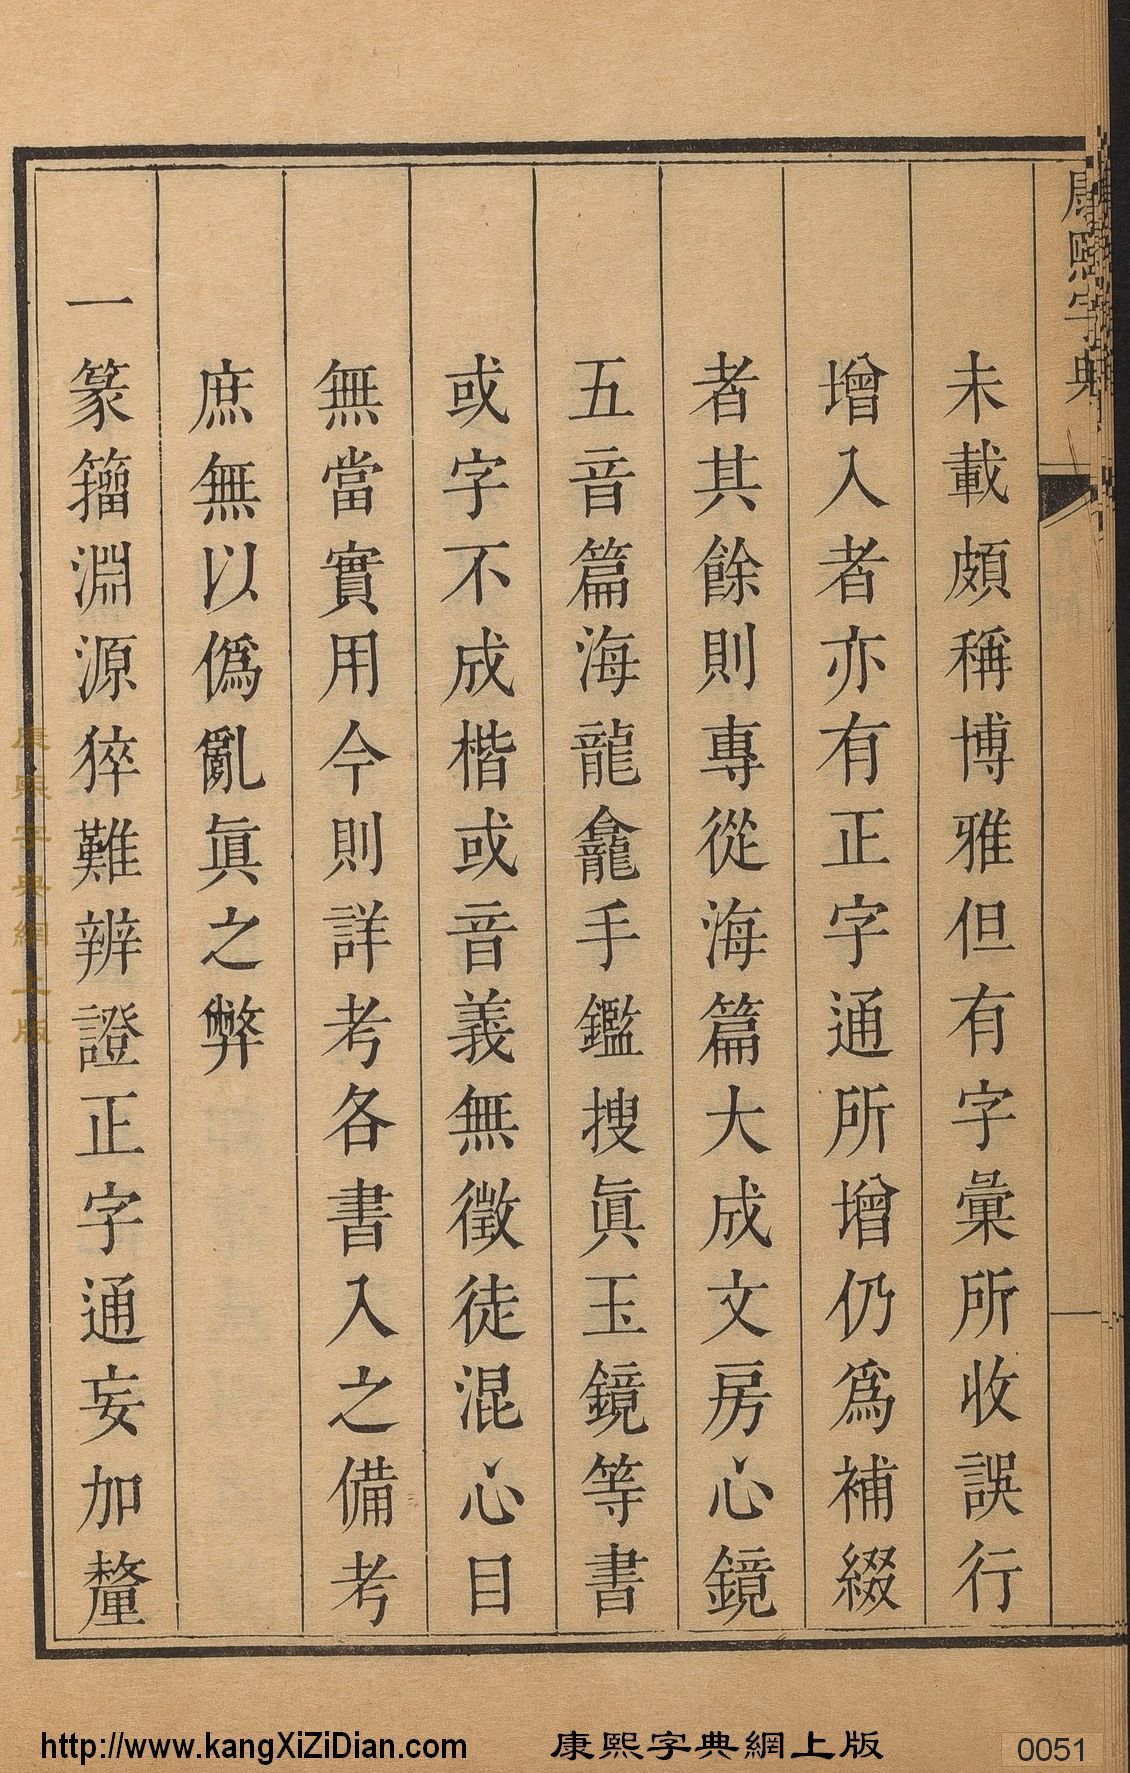 康熙字典
未載頗稱博雅但有字彙所收誤行
增入者亦有正字通所增仍爲補綴
者其餘則專從海篇大成文房心鏡
五音篇海龍龕手鑑搜眞玉鏡等書
或字不成楷或音義無徵徒混心目
無當實用今則詳考各書入之備考
庶無以僞亂眞之弊
一篆籀淵源猝難辨證正字通妄加釐
康熙字典網上版
http://www.kangXiZiDian.com
康熙字典網上版
0051